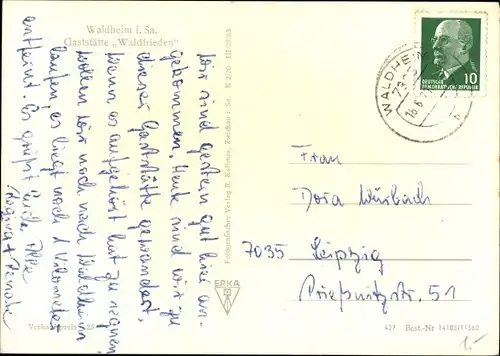 Waldheim i. Sa.
Gaststätte „Waldfrieden"
Wir sind gestern gut hier an-
gekommen. Heute sind wir zu
dieser Gaststätte gewandert.
Wenn es aufgehört hat zu regnen
wollen wir noch nach Waldheim
laufen, es liegt noch 1 Kilometer
entfernt. Es grüßt Euch Alle
Regina + Renate
III/29/63
Fotografischer Verlag R. Kallmer, Zwickau i. Sa.
ERKA
WALDHEIM
10
DEUTSCHE
DEMOKRATISCHE REPUBLIK
Frau
Dora Würbach
7035 Leipzig
Prießnitzstr. 51
427 Best.-Nr
1.-